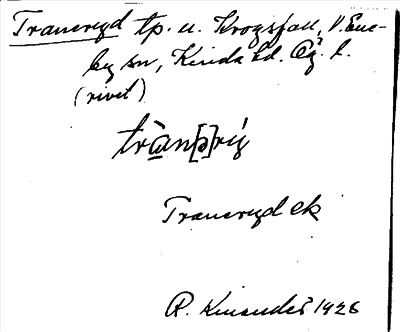 Traneryd tp. u. Krogsfall, V. Ene-
by sn, Kinda hd. Ög. l.
(rivet)
tràn[ə]rý
Traneryd ek
R. 1926